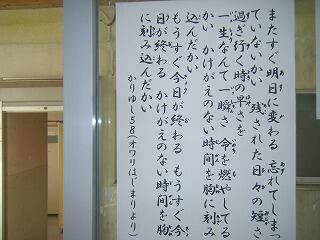 またすぐ明日に変わる 忘れてしまっ
ていないかい 残された日々の短さ
過ぎ行く時の早さを
一生なんて一瞬さ 命を燃やしてる
かい かけがえのない時間を胸に刻み
込んだかい
もうすぐ今日が終わる もうすぐ今
日が終わる かけがえのない時間を胸
に刻み込んだかい
かりゆし58(オワリはじまりより)